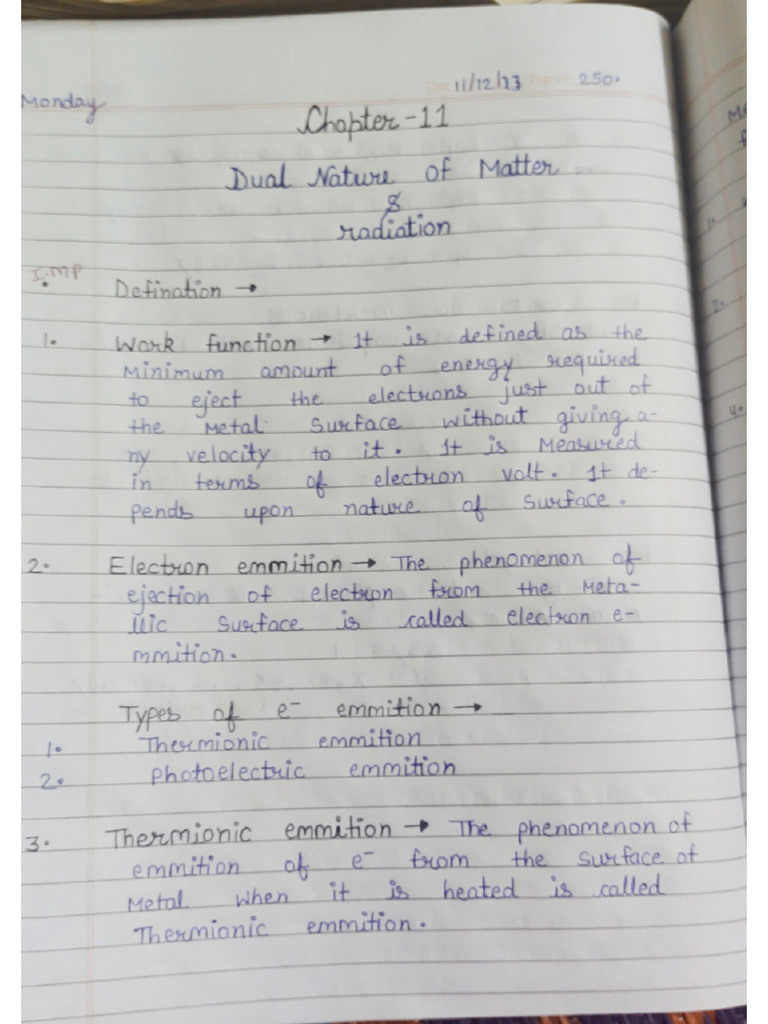 11/12/23 250.
Monday
Chapter-11
Dual Nature of Matter
&
radiation
I.MP
Defination →
1. Work function → It is defined as the
minimum amount of energy required
to eject the electrons just out of
the Metal Surface without giving a-
ny velocity to it. It is Measured
in terms of electron volt. It de-
pends upon nature of Surface.
2. Electron emmition → The phenomenon of
ejection of electron from the Meta-
llic Surface is called electron e-
mmition.
Types of e⁻ emmition →
1. Thermionic emmition
2. Photoelectric emmition
3. Thermionic emmition → The phenomenon of
emmition of e⁻ from the surface of
Metal when it is heated is called
Thermionic emmition.
2.
4.